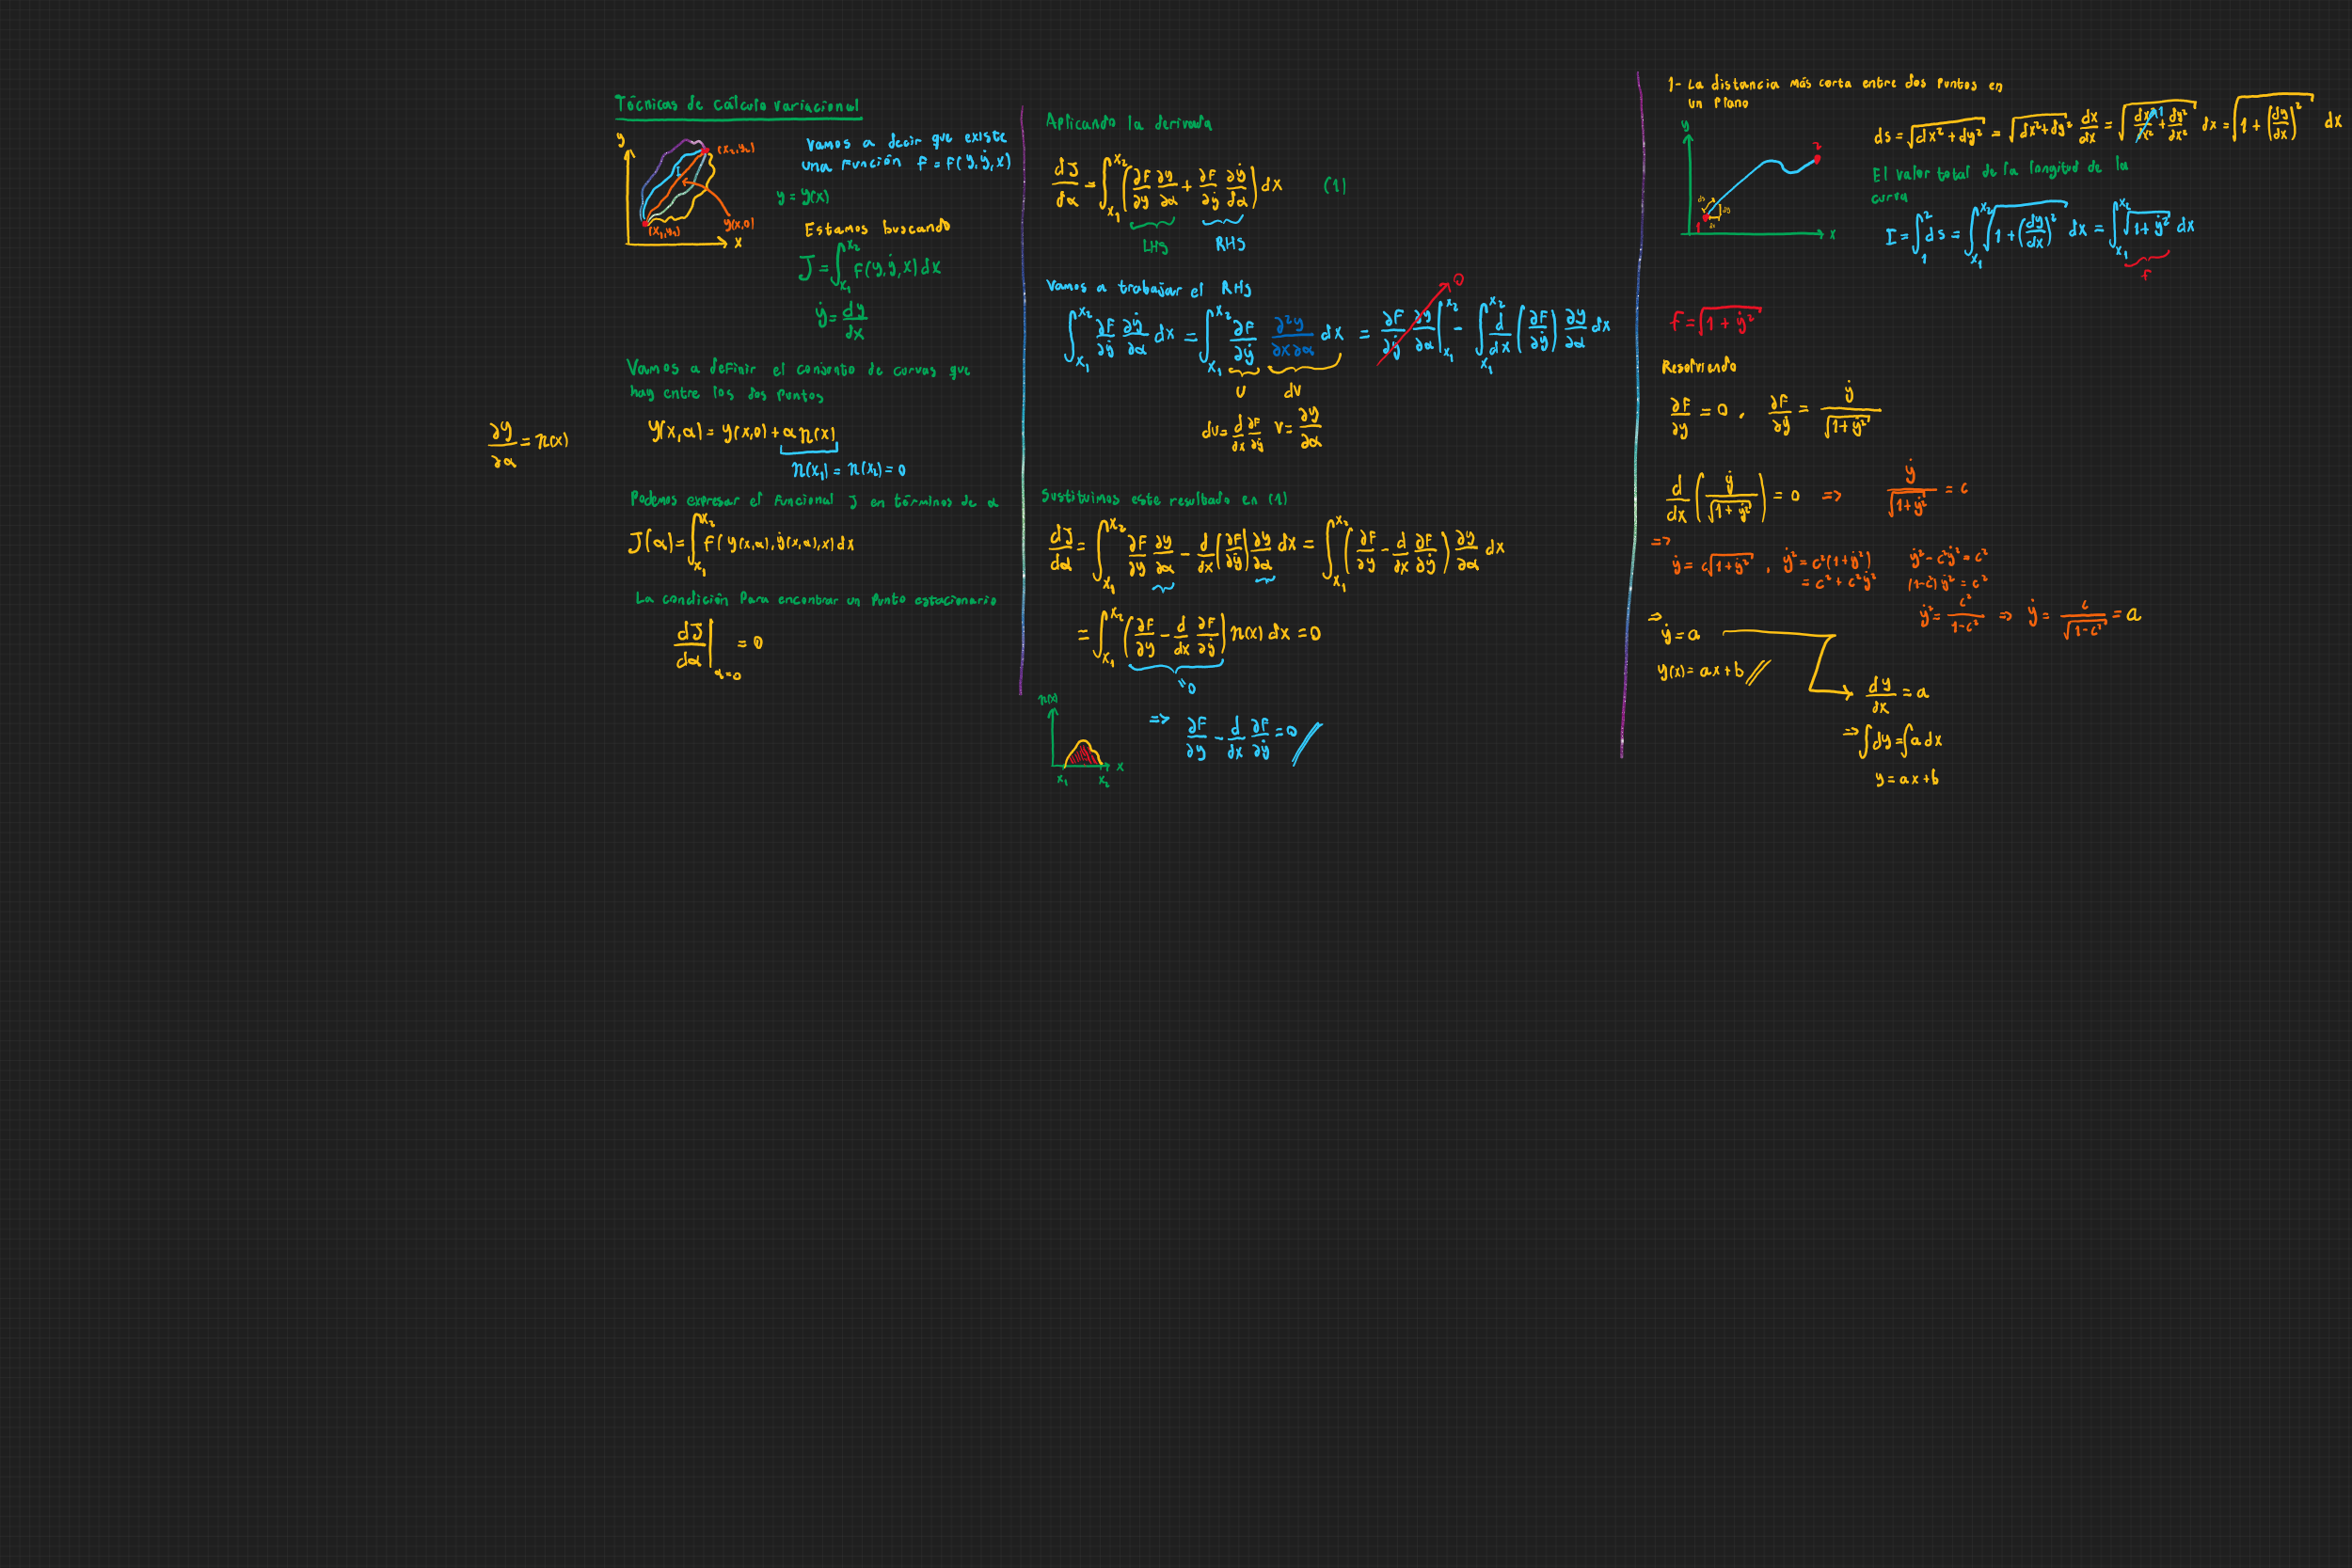 Técnicas de Cálculo variacional
y
(x₂,y₂)
(x₁,y₁)
y(x,0)
x
Vamos a decir que existe
una función f = f(y,ẏ,x)
y = y(x)
Estamos buscando
J = ∫_{x₁}^{x₂} f(y,ẏ,x) dx
ẏ = dy/dx
Vamos a definir el conjunto de curvas que
hay entre los dos puntos
∂y/∂α = n(x)
y(x,α) = y(x,0) + α n(x)
n(x₁) = n(x₂) = 0
Podemos expresar el funcional J en términos de α
J(α) = ∫_{x₁}^{x₂} f(y(x,α), ẏ(x,α), x) dx
La condición para encontrar un punto estacionario
dJ/dα |_{α=0} = 0
Aplicando la derivada
dJ/dα = ∫_{x₁}^{x₂} (∂F/∂y ∂y/∂α + ∂F/∂ẏ ∂ẏ/∂α) dx (1)
LHS RHS
Vamos a trabajar el RHS
∫_{x₁}^{x₂} ∂F/∂ẏ ∂ẏ/∂α dx = ∫_{x₁}^{x₂} ∂F/∂ẏ ∂²y/∂x∂α dx = ∂F/∂ẏ ∂y/∂α |_{x₁}^{x₂} - ∫_{x₁}^{x₂} d/dx (∂F/∂ẏ) ∂y/∂α dx
0
U dV
dU = d/dx ∂F/∂ẏ V = ∂y/∂α
Sustituimos este resultado en (1)
dJ/dα = ∫_{x₁}^{x₂} ∂F/∂y ∂y/∂α - d/dx (∂F/∂ẏ) ∂y/∂α dx = ∫_{x₁}^{x₂} (∂F/∂y - d/dx ∂F/∂ẏ) ∂y/∂α dx
= ∫_{x₁}^{x₂} (∂F/∂y - d/dx ∂F/∂ẏ) n(x) dx = 0
= 0
n(x)
x₁ x₂ x
=> ∂F/∂y - d/dx ∂F/∂ẏ = 0
1- La distancia más corta entre dos puntos en
un plano
y
2
ds
dy
dx
1
x
ds = √(dx² + dy²) = √(dx² + dy²) dx/dx = √(dx²/dx² + dy²/dx²) dx = √(1 + (dy/dx)²) dx
1
El valor total de la longitud de la
curva
I = ∫₁² ds = ∫_{x₁}^{x₂} √(1 + (dy/dx)²) dx = ∫_{x₁}^{x₂} √(1 + ẏ²) dx
f
f = √(1 + ẏ²)
Resolviendo
∂F/∂y = 0 , ∂F/∂ẏ = ẏ/√(1+ẏ²)
d/dx (ẏ/√(1+ẏ²)) = 0 => ẏ/√(1+ẏ²) = c
=>
ẏ = c√(1+ẏ²) , ẏ² = c²(1+ẏ²) ẏ² - c²ẏ² = c²
= c² + c²ẏ² (1-c²)ẏ² = c²
ẏ² = c²/(1-c²) => ẏ = c/√(1-c²) = a
=>
ẏ = a
y(x) = ax + b
dy/dx = a
=> ∫dy = ∫a dx
y = ax + b